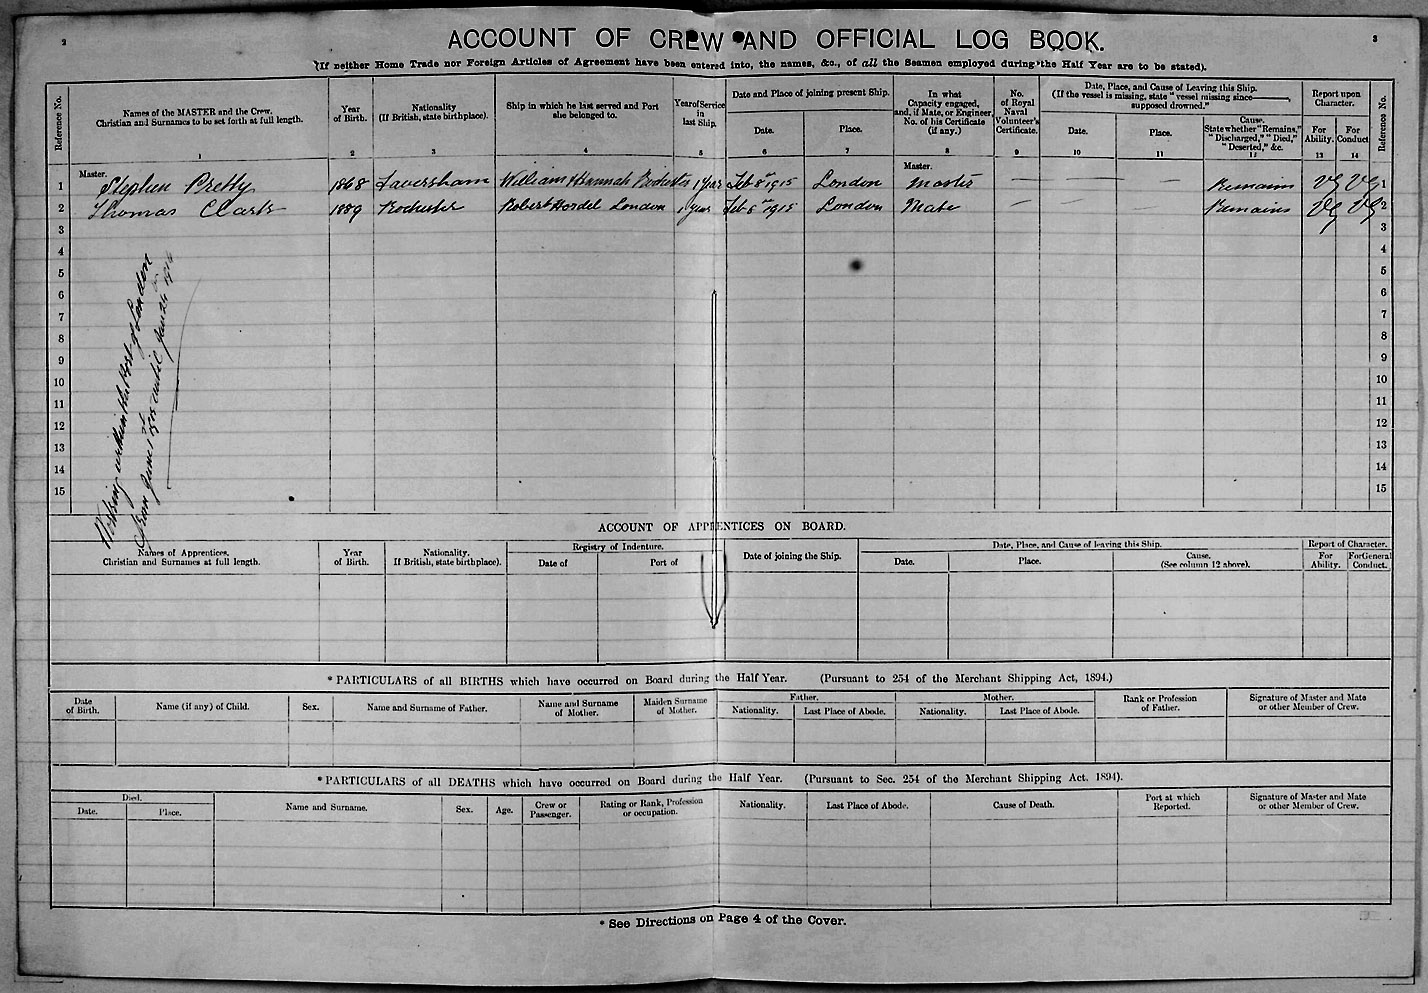 2
3
ACCOUNT OF CREW AND OFFICIAL LOG BOOK.
(If neither Home Trade nor Foreign Articles of Agreement have been entered into, the names, &c., of all the Seamen employed during the Half Year are to be stated).
Reference No.
Names of the MASTER and the Crew.
Christian and Surnames to be set forth at full length.
1
Year
of Birth.
2
Nationality
(If British, state birthplace).
3
Ship in which he last served and Port
she belonged to.
4
Year of Service
in
last Ship.
5
Date and Place of joining present Ship.
Date.
6
Place.
7
In what
Capacity engaged,
and, if Mate, or Engineer,
No. of his Certificate
(if any.)
8
No.
of Royal
Naval
Volunteer's
Certificate.
9
Date, Place, and Cause of Leaving this Ship.
(If the vessel is missing, state "vessel missing since
supposed drowned."
Date.
10
Place.
11
Cause.
State whether "Remains,"
"Discharged," "Died,"
"Deserted," &c.
12
Report upon
Character.
For
Ability.
13
For
Conduct
14
Reference No.
Master. Master.
1 Stephen Pretty 1868 Faversham William Hannah Rochester 1 Year Feb 8th 1915 London Master — — — Remains VG VG 1
2 Thomas Clark 1889 Rochester Robert London 1 year Feb 8th 1915 London Mate — — — Remains VG VG 2
3 3
4 4
5 5
6 6
7 7
8 8
9 9
10 10
11 11
12 12
13 13
14 14
15 15
Working within the Port of London
from June 1st 1915 until
ACCOUNT OF APPRENTICES ON BOARD.
Names of Apprentices.
Christian and Surnames at full length.
Year
of Birth.
Nationality.
If British, state birthplace).
Registry of Indenture.
Date of
Port of
Date of joining the Ship.
Date, Place, and Cause of leaving this Ship.
Date.
Place.
Cause.
(See column 12 above).
Report of Character.
For
Ability.
For General
Conduct.
* PARTICULARS of all BIRTHS which have occurred on Board during the Half Year. (Pursuant to 254 of the Merchant Shipping Act, 1894.)
Date
of Birth.
Name (if any) of Child.
Sex.
Name and Surname of Father.
Name and Surname
of Mother.
Maiden Surname
of Mother.
Father.
Nationality.
Last Place of Abode.
Mother.
Nationality.
Last Place of Abode.
Rank or Profession
of Father.
Signature of Master and Mate
or other Member of Crew.
* PARTICULARS of all DEATHS which have occurred on Board during the Half Year. (Pursuant to Sec. 254 of the Merchant Shipping Act. 1894).
Died.
Date.
Place.
Name and Surname.
Sex.
Age.
Crew or
Passenger.
Rating or Rank, Profession
or occupation.
Nationality.
Last Place of Abode.
Cause of Death.
Port at which
Reported.
Signature of Master and Mate
or other Member of Crew.
* See Directions on Page 4 of the Cover.